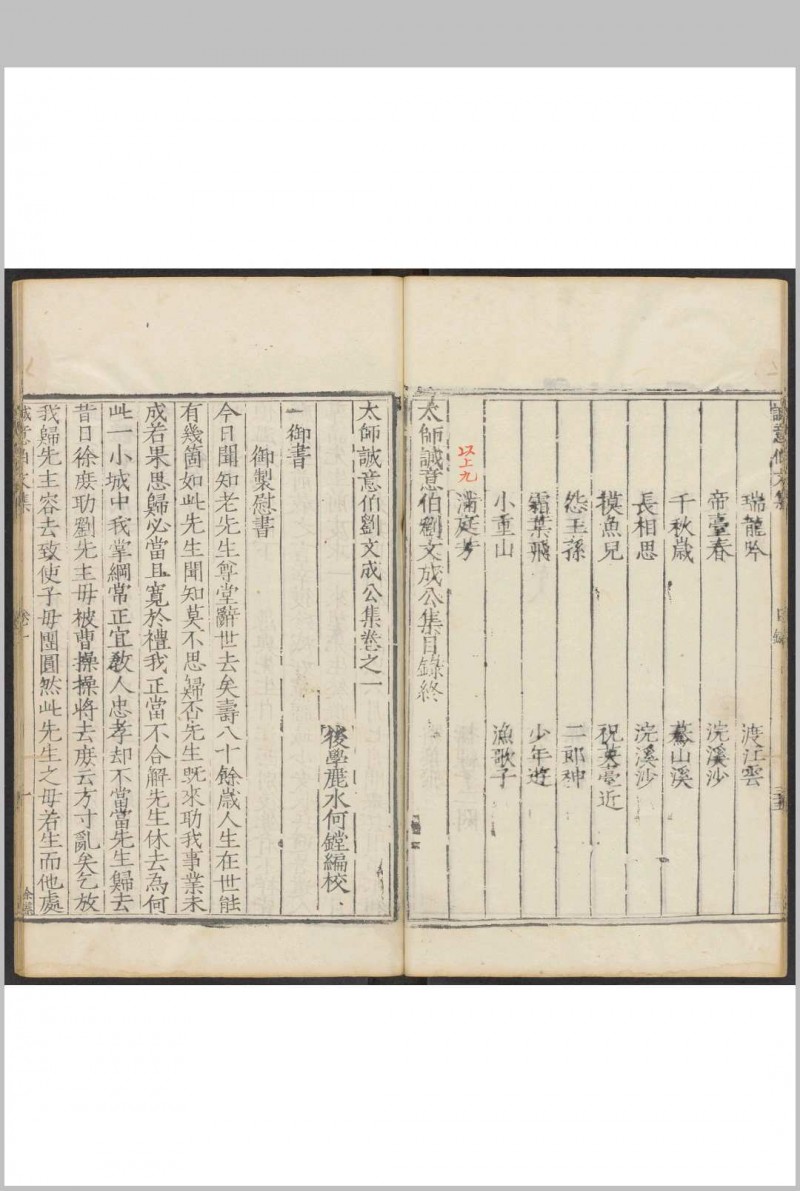 瑞龍吟 渡江雲
帝臺春 浣溪沙
千秋歲 驀山溪
長相思 浣溪沙
摸魚兒 祝英臺近
怨王孫 二郎神
霜葉飛 少年遊
小重山 漁歌子
滿庭芳
以上九
太師誠意伯劉文成公集目錄終
太師誠意伯劉文成公集卷之一
後學麗水何鏜編校
一御書
御製慰書
今日聞知老先生尊堂辭世去矣壽八十餘歲人生在世能
有幾箇如此先生聞知莫不思歸否先生旣來助我事業未
成若果思歸必當且寬於禮我正當不合解先生休去為何
此一小城中我掌綱常正宜敎人忠孝却不當當先生歸去
昔日徐庶助劉先主母被曹操操將去庶云方寸亂矣乞放
我歸先主容去致使子母團圓然此先生之母若生而他處
誠意伯文集 卷一 一